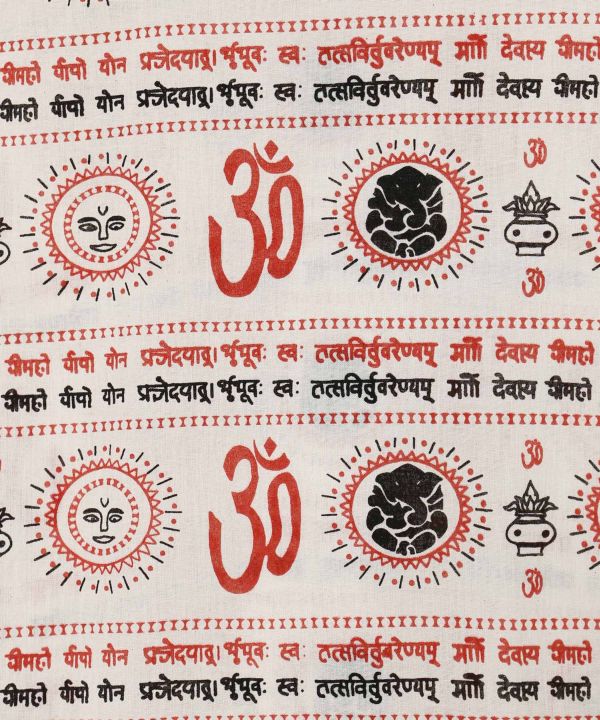 धीमही र्यापो योन प्रजेदयाद्। र्भूभूवः स्वः तत्सविर्तुवरेण्यम् र्माो देवाय धीमही
धीमही र्यापो योन प्रजेदयाद्। र्भूभूवः स्वः तत्सविर्तुवरेण्यम् र्माो देवाय धीमही
ॐ
ॐ
ॐ
धीमही र्यापो योन प्रजेदयाद्। र्भूभूवः स्वः तत्सविर्तुवरेण्यम् र्माो देवाय धीमही
धीमही र्यापो योन प्रजेदयाद्। र्भूभूवः स्वः तत्सविर्तुवरेण्यम् र्माो देवाय धीमही
ॐ
ॐ
ॐ
धीमही र्यापो योन प्रजेदयाद्। र्भूभूवः स्वः तत्सविर्तुवरेण्यम् र्माो देवाय धीमही
धीमही र्यापो योन प्रजेदयाद्। र्भूभूवः स्वः तत्सविर्तुवरेण्यम् र्माो देवाय धीमही